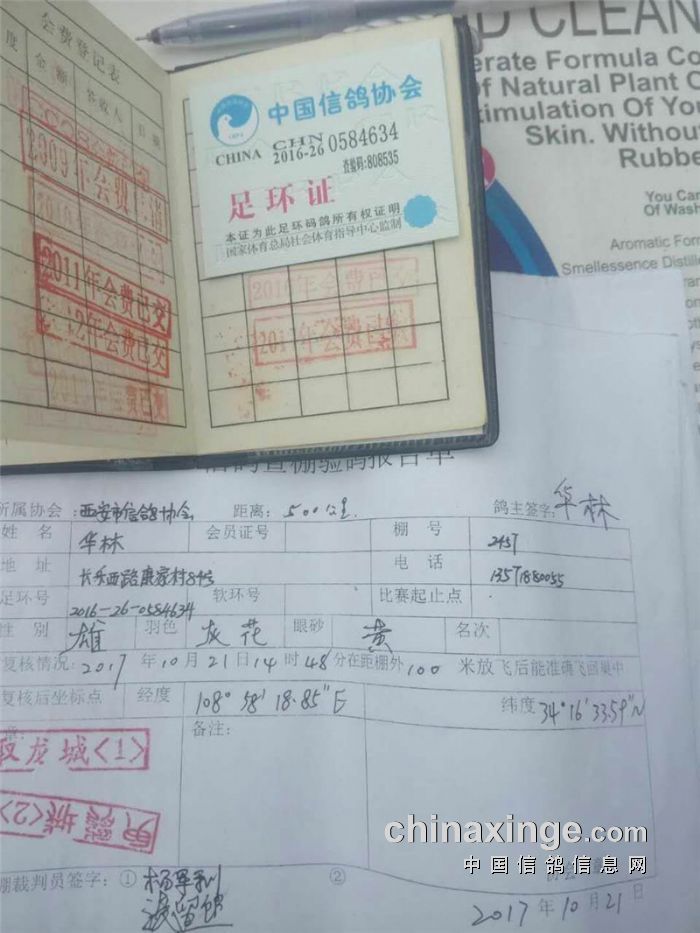 会费登记表
度 金额 签收人 日期
2009年会费
2011年会费已交
2年会费已交
中国信鸽协会
CHN
CHINA 2016-26 0584634
查验码:808535
足环证
本证为此足环码鸽所有权证明
国家体育总局社会体育指导中心监制
年会费已
CLEAN
erate Formula Co
f Natural Plant O
timulation Of Yo
Skin. Withou
Rubbe
You Can
Of Wash
Aromatic Form
Smellessence Distille
棚验鸽报告单
所属协会:西安市信鸽协会 距离:500公里 鸽主签字:华林
姓名 华林 会员证号 棚号 2457
地址 长乐西路康家村84号 电话 13571880055
足环号 2016-26-0584634 软环号 比赛起止点
性别 雄 羽色 灰花 眼砂 黄 名次
复核情况:2017年10月21日14时48分在距棚外100米放飞后能准确飞回巢中
复核后坐标点 经度 108°58'18.85"E 纬度 34°16'33.59"N
备注:
龙城<1>
城<2>
chinaxinge.com
中国信鸽信息网
棚裁判员签字:① ②
2017年10月21日